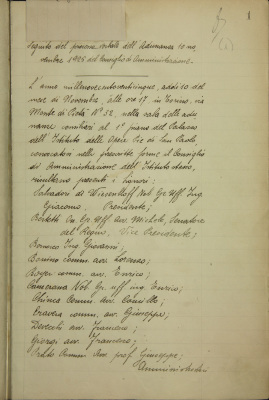 1
Seguito del processo verbale dell'Adunanza 10 no
vembre 1925 del Consiglio di Amministrazione.
L'anno millenovecentoventicinque, addì 10 del
mese di Novembre, alle ore 17 in Torino, via
Monte di Pietà N° 32, nella sala delle adu
nanze consiliari al 1° piano del Palazzo
dell'Istituto delle Opere Pie di San Paolo
convocatosi nelle prescritte forme il Consiglio
di Amministrazione dell'Istituto stesso,
risultano presenti i Signori:
Salvadori di Wiesenhoff Nob. Gr. Uff. Ing.
Giacomo, Presidente;
Gr. Uff. Avv. Michele, Senatore
del Regno, Vice Presidente;
Ing. Giovanni;
Bonino comm. avv. Lorenzo;
comm. avv. Enrico;
Nob. Gr. uff. ing. Enrico;
comm. avv. Camillo;
comm. avv. Giuseppe;
avv. Francesco;
avv. Francesco;
Avv. prof. Giuseppe;
Amministratori